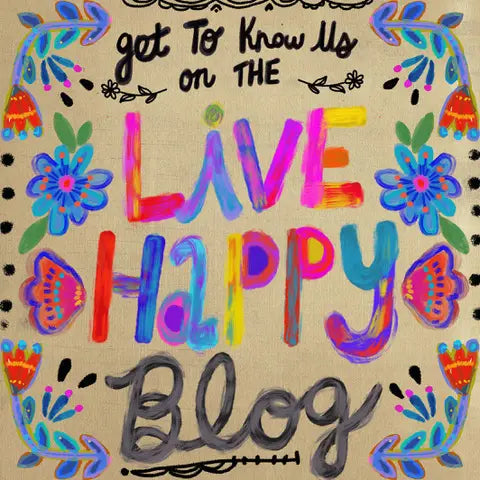 get To Know Us
on THE
LiVE
HaPPY
Blog